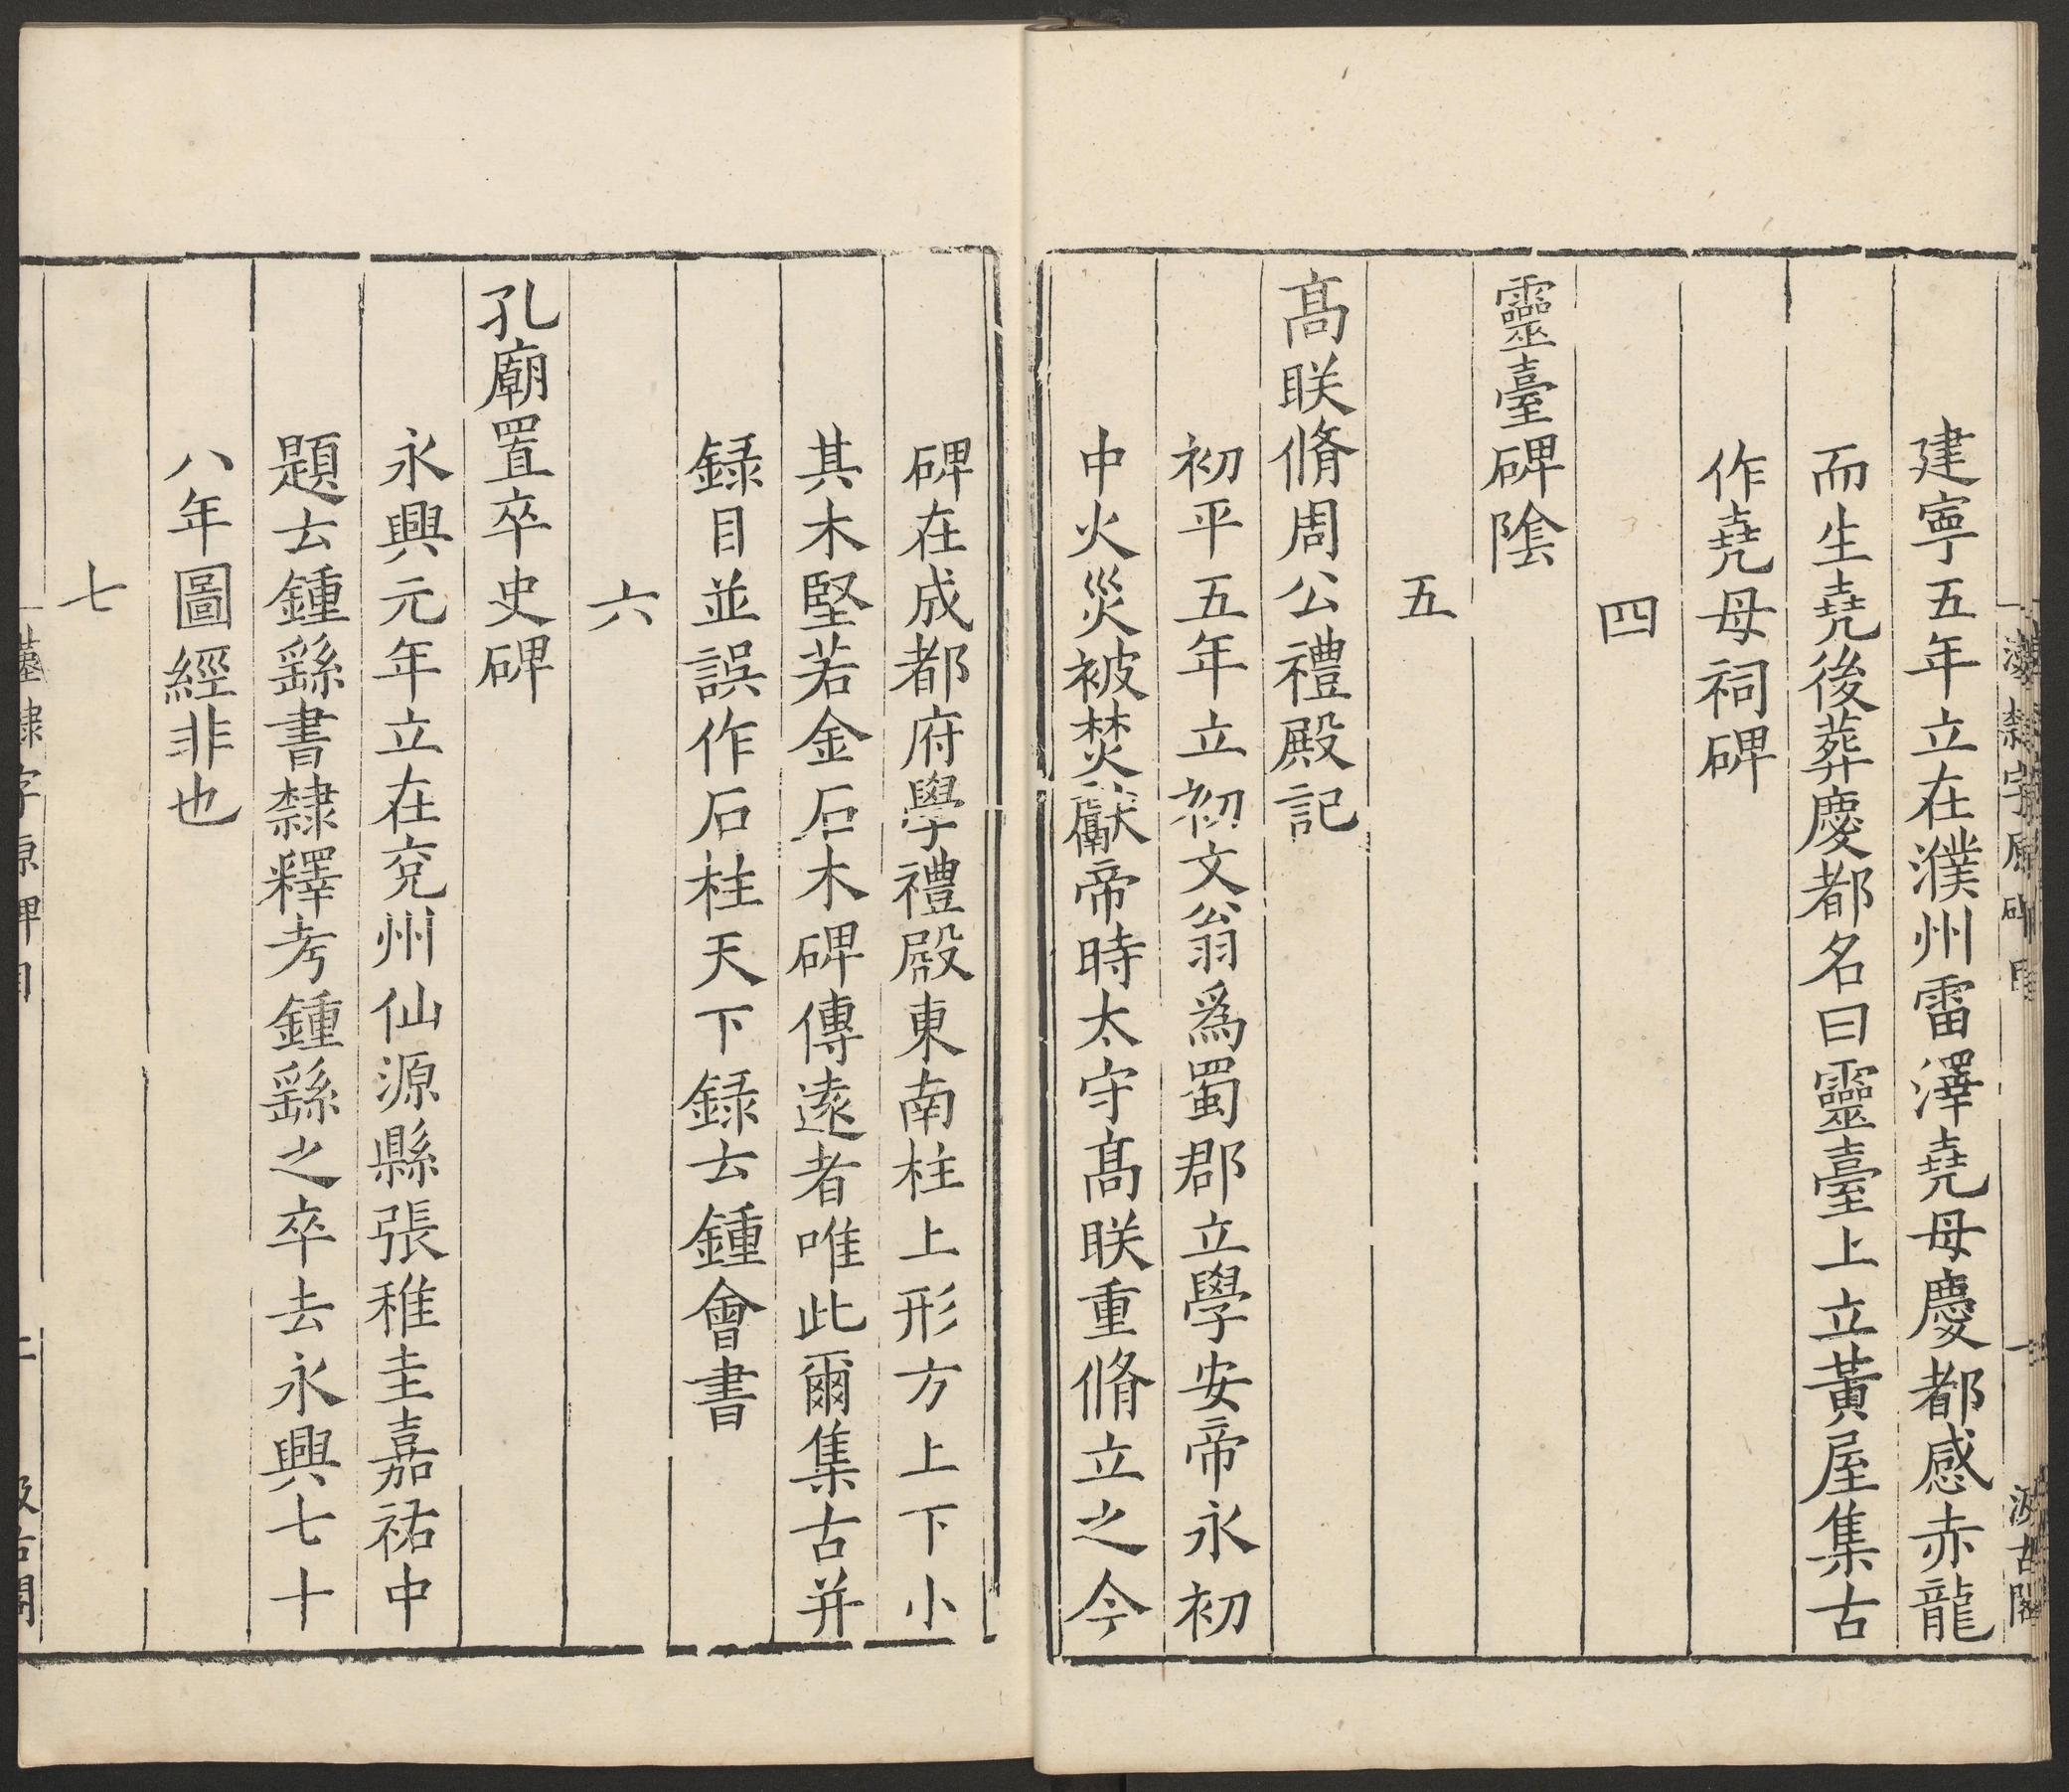 建寧五年立在濮州雷澤堯母慶都感赤龍
而生堯後葬慶都名曰靈臺上立黃屋集古
作堯母祠碑
四
靈臺碑陰
五
高眹脩周公禮殿記
初平五年立初文翁爲蜀郡立學安帝永初
中火災被焚獻帝時太守高眹重脩立之今
碑在成都府學禮殿東南柱上形方上下小
其木堅若金石木碑傳遠者唯此爾集古并
録目並誤作石柱天下録云鍾會書
六
孔廟置卒史碑
永興元年立在兖州仙源縣張稚圭嘉祐中
題云鍾繇書隸釋考鍾繇之卒去永興七十
八年圖經非也
七